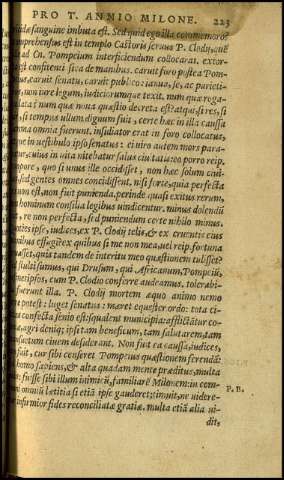 PRO T. ANNIO MILONE. 223
sanguine imbuta est. Sed quid ego illa commemoro?
comprehensus est in templo Castoris seruus P. Clodij, quē
ad Cn. Pompeium interficiendum collocarat. extor-
ei confitenti sica de manibus. caruit foro postea Pom-
caruit senatu, caruit publico. ianua, se, ac parieti-
non iure legum, iudiciorumque texit. num qua roga-
lata? num qua noua quæstio decreta est? atqui si res, si
si tempus ullum dignum fuit, certe hæc in illa caussa
omnia fuerunt. insidiator erat in foro collocatus,
in uestibulo ipso senatus: ei uiro autem mors para-
cuius in uita nitebatur salus ciuitatis: eo porro reip.
quo si unus ille occidisset, non hæc solum ciui-
sed gentes omnes concidissent. nisi forte, quia perfecta
est, non fuit punienda. perinde quasi exitus rerum,
hominum consilia legibus uindicentur. minus dolendū
re non perfecta, sed puniendum certe nihilo minus.
ipse, iudices, ex P. Clodij telis, & ex cruentis eius
effugi? ex quibus si me non mea, uel reip. fortuna
quis tandem de interitu meo quæstionem tulisset?
stulti sumus, qui Drusum, qui Africanum, Pompeiū,
ipsos, cum P. Clodio conferre audeamus. tolerabi-
fuerunt illa. P. Clodij mortem æquo animo nemo
potest: luget senatus: mæret equester ordo: tota ci-
confecta senio est: squalent municipia: afflictātur co-
agri deniq; ipsi tam beneficum, tam salutarem, tam
ciuem desiderant. Non fuit ea caussa, iudices,
fuit, cur sibi censeret Pompeius quæstionem ferendā:
homo sapiens, & alta quadam mente præditus, multa
fuisse sibi illum inimicū, familiarē Milonem: in com-
omnium lætitia si etiā ipse gauderet, timuit, ne uidere-
infirmior fides reconciliatæ gratiæ. multa etiā alia ui-
P. B.
dit,